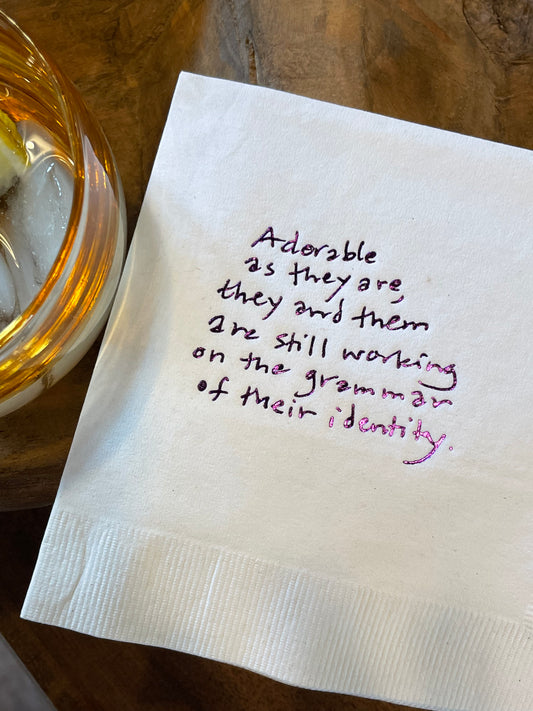 Adorable
as they are,
they and them
are still working
on the grammar
of their identity.